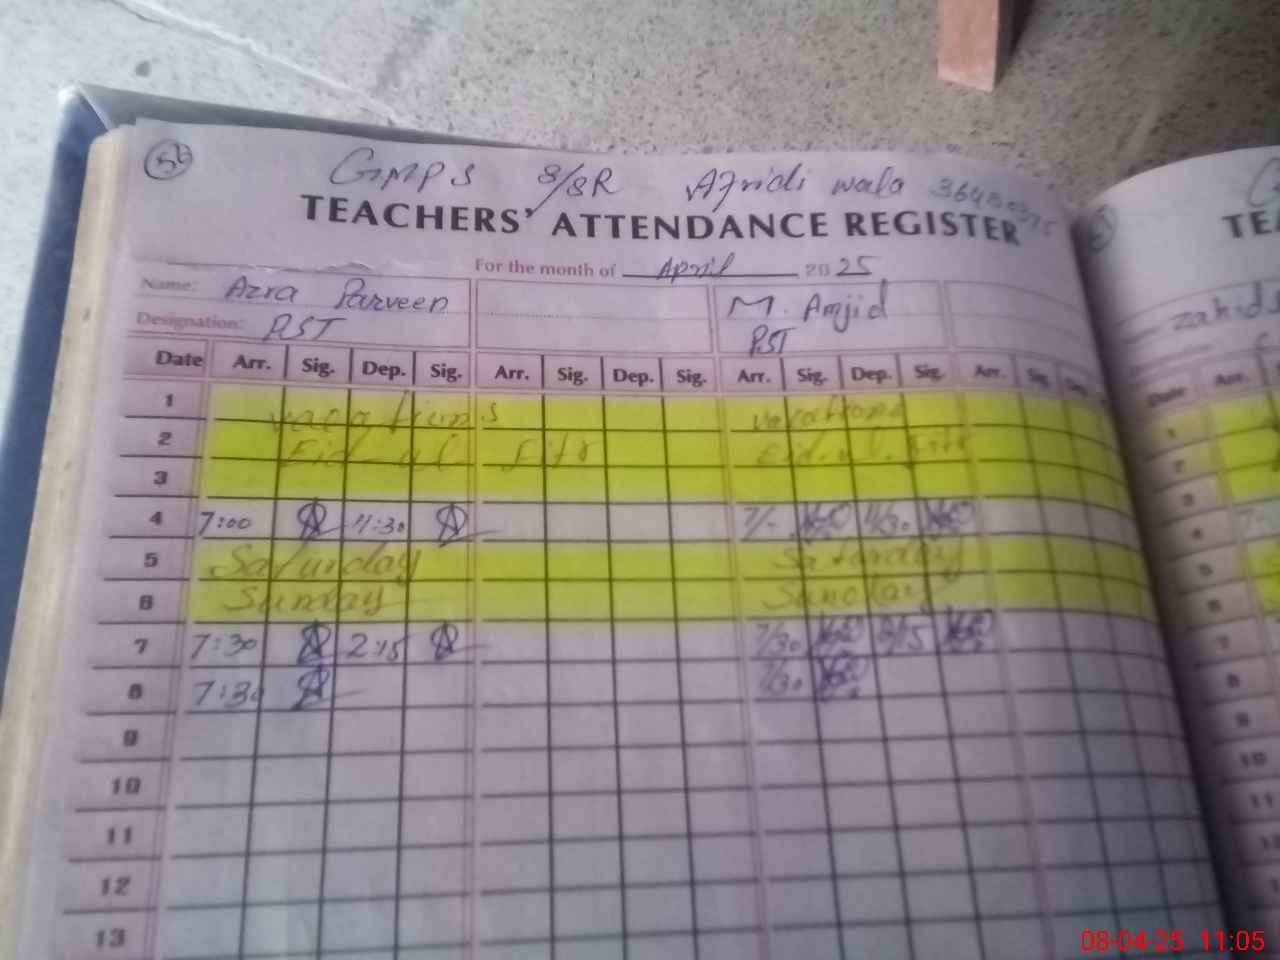 56
GMPS 8/8R Afridi wala
TEACHERS' ATTENDANCE REGISTER
For the month of April 2025
Name: Azra Parveen M. Amjid Zahid
Designation: PST PST
Date Arr. Sig. Dep. Sig. Arr. Sig. Dep. Sig. Arr. Sig. Dep. Sig. Arr. Sig. Dep. Date Arr.
1 vacations vacations 1
2 Eid-ul Fitr Eid.ul.Fitr 2
3 3
4 7:00 11:30 7/- 11/30 4
5 Saturday Saturday 5
6 Sunday Sunday 6
7 7:30 2:15 7/30 2/15 7
8 7:30 7/30 8
9 9
10 10
11 11
12
13
08-04-25 11:05